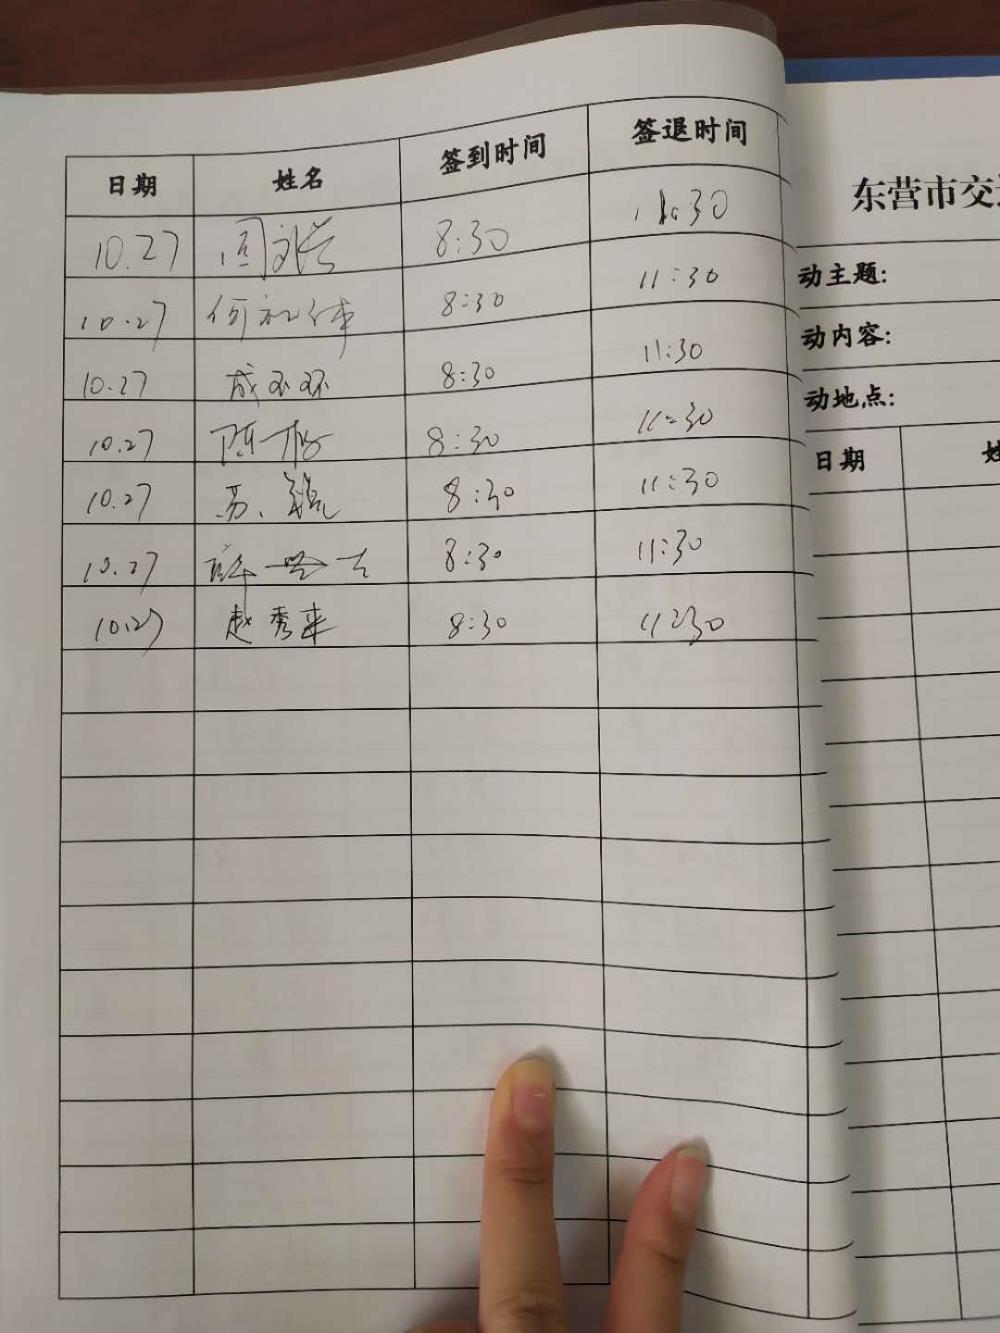 日期 姓名 签到时间 签退时间
10.27 周 8:30 11:30
10.27 何 8:30 11:30
10.27 成玉环 8:30 11:30
10.27 陈 8:30 11:30
10.27 苏 8:30 11:30
10.27 8:30 11:30
10.27 赵秀来 8:30 11:30
东营市交
动主题:
动内容:
动地点:
日期 姓